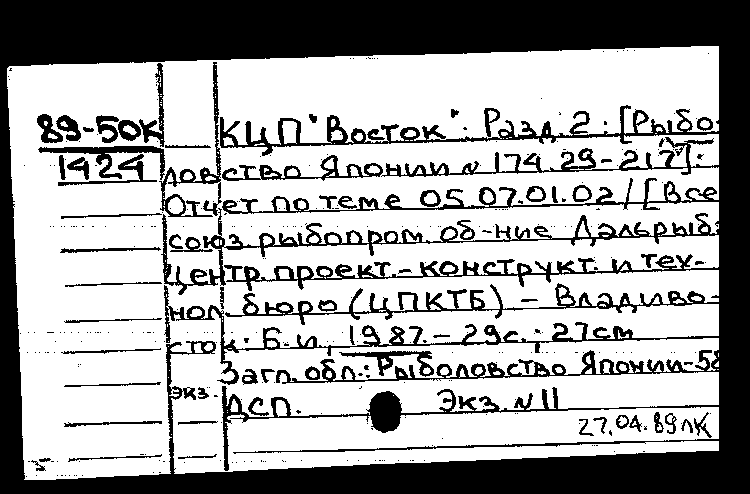 89-50К КЦП "Восток": Разд. 2 : [Рыбо-
1424 ловство Японии № 174.29-217]:
Отчет по теме 05.07.01.02 / [Все
союз. рыбопром. об-ние Дальрыба
Центр. проект.-конструкт. и тех-
нол. бюро (ЦПКТБ) - Владиво-
сток: Б.и., 1987. - 29с.; 27см
Загл. обл.: Рыболовство Японии-58
экз. ДСП. Экз. №11
27.04.89 ЛК